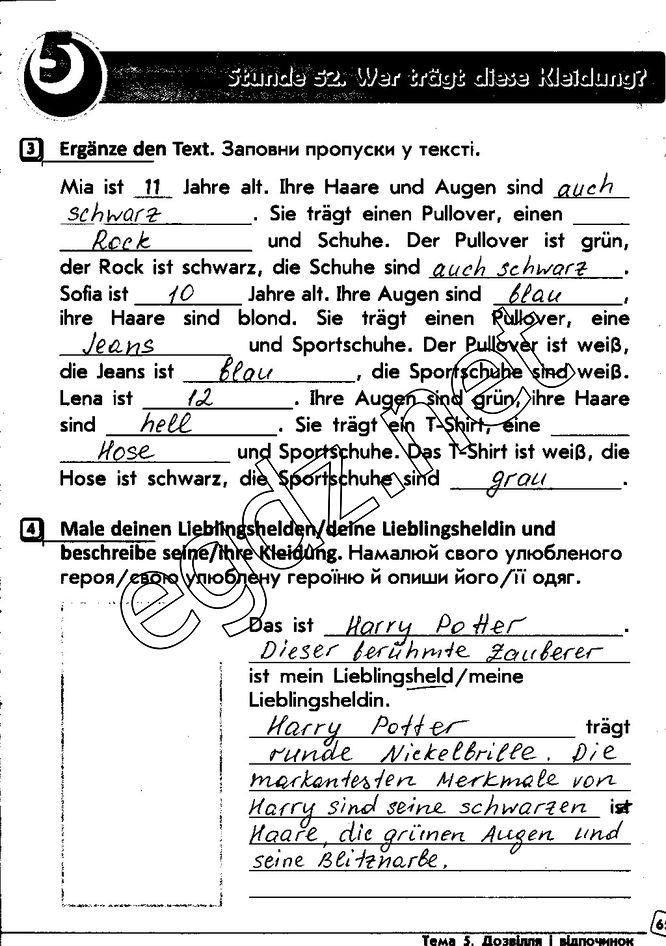 5
Stunde 52. Wer trägt diese Kleidung?
3 Ergänze den Text. Заповни пропуски у тексті.
Mia ist 11 Jahre alt. Ihre Haare und Augen sind auch
schwarz . Sie trägt einen Pullover, einen
Rock und Schuhe. Der Pullover ist grün,
der Rock ist schwarz, die Schuhe sind auch schwarz .
Sofia ist 10 Jahre alt. Ihre Augen sind blau ,
ihre Haare sind blond. Sie trägt einen Pullover, eine
Jeans und Sportschuhe. Der Pullover ist weiß,
die Jeans ist blau , die Sportschuhe sind weiß.
Lena ist 12 . Ihre Augen sind grün, ihre Haare
sind hell . Sie trägt ein T-Shirt, eine
Hose und Sportschuhe. Das T-Shirt ist weiß, die
Hose ist schwarz, die Sportschuhe sind grau .
4 Male deinen Lieblingshelden/deine Lieblingsheldin und
beschreibe seine/ihre Kleidung. Намалюй свого улюбленого
героя/свою улюблену героїню й опиши його/її одяг.
Das ist Harry Potter .
Dieser berühmte Zauberer
ist mein Lieblingsheld/meine
Lieblingsheldin.
Harry Potter trägt
runde Nickelbrille. Die
markantesten Merkmale von
Harry sind seine schwarzen ist
Haare, die grünen Augen und
seine Blitznarbe.
egdz.net
Тема 5. Дозвілля і відпочинок